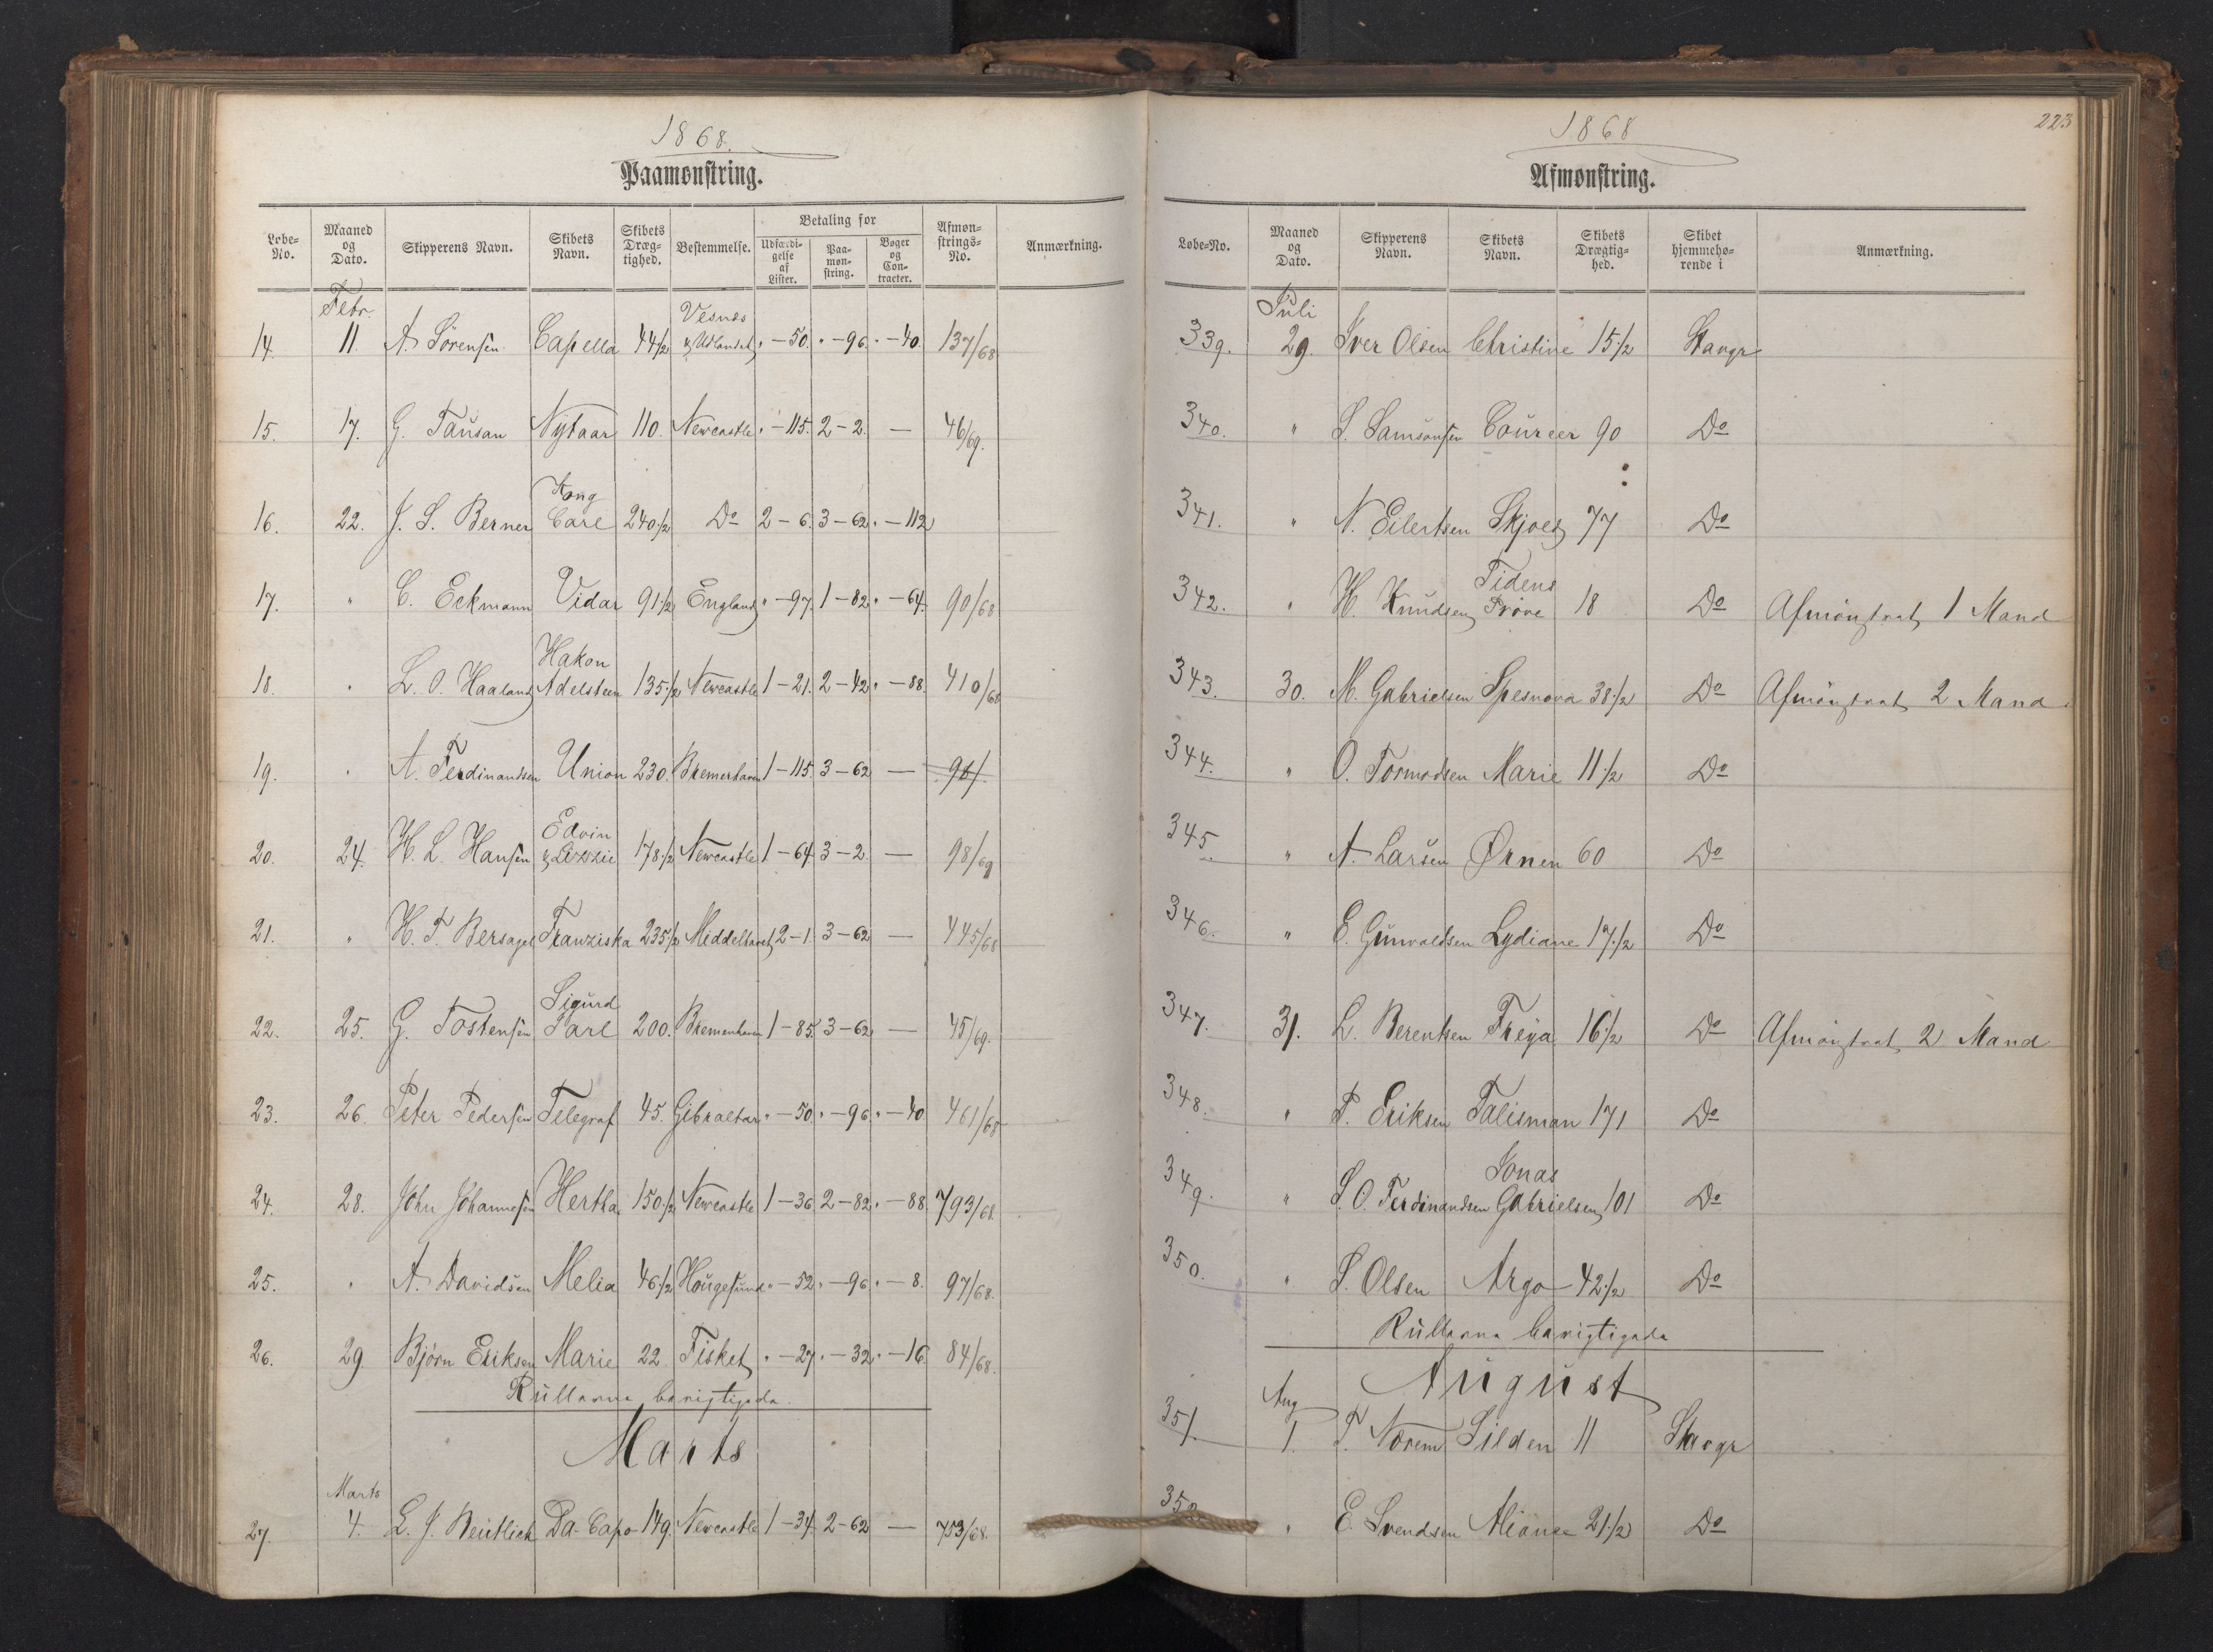 1868.
Paamønstring.
Løbe-No. Maaned og Dato. Skipperens Navn. Skibets Navn. Skibets Dræg-tighed. Bestemmelse. Betaling for Udfærdi-gelse af Lister. Paa-møn-string. Bøger og Con-tracter. Afmøn-strings-No. Anmærkning.
Febr.
14. 11. A. Sörensen Capella 44 1/2 Vesnes & Udlandet " - 50. " - 96. " - 40. 137/68
15. 17. G. Tausan Nytaar 110. Newcastle " - 115. 2 - 2. — 46/69.
16. 22. J. S. Berner Kong Carl 240 1/2 Do 2 - 6. 3 - 62. " - 112
17. " C. Eckmann Vidar 91 1/2 England " - 97. 1 - 82. " - 64. 90/68
18. " L. O. Haaland Hakon Adelsteen 135 1/2 Newcastle 1 - 21. 2 - 42. " - 88. 410/68
19. " A. Ferdinandsen Union 230. Bremerhaven 1 - 115. 3 - 62 —
20. 24. H. L. Hansen Edvin & Lizzie 178 1/2 Newcastle 1 - 64. 3 - 2. — 98/69
21. " H. T. Bersagel Franziska 235 1/2 Middelhavet 2 - 1. 3 - 62 — 445/68
22. 25. G. Tostensen Sigurd Jarl 200. Bremerhaven 1 - 85. 3 - 62 — 45/69.
23. 26. Peter Pedersen Telegraf 45. Gibraltar " - 50. " - 96. " - 40 461/68
24. 28. John Johannesen Hertha 150 1/2 Newcastle 1 - 36. 2 - 82. " - 88. 793/68.
25. " A. Davidsen Melia 46 1/2 Hougesund " - 52. " - 96. " - 8. 97/68.
26. 29 Bjørn Eriksen Marie 22. Fisket " - 27. " - 32. " - 16. 84/68.
Rullerne berigtigede.
Marts
Marts
27. 4. L. J. Beutlich Da-Capo 149. Newcastle 1 - 34. 2 - 62 — 753/68.
1868
223
Afmønstring.
Løbe-No. Maaned og Dato. Skipperens Navn. Skibets Navn. Skibets Drægtig-hed. Skibet hjemmehø-rende i Anmærkning.
Juli
339. 29. Iver Olsen Christine 15 1/2 Stavgr
340. " S. Samsonsen Coureer 90 Do
341. " N. Eilertsen Skjold 77 Do
342. " H. Knudsen Tidens Prøve 18 Do Afmönstret 1 Mand
343. 30. M. Gabrielsen Spesnova 38 1/2 Do Afmönstret 2 Mand.
344. " O. Tormodsen Marie 11 1/2 Do
345. " A. Larsen Ørnen 60 Do
346. " E. Gunvaldsen Lydiane 17 1/2 Do
347. 31. L. Berentsen Freya 16 1/2 Do Afmönstret 2 Mand
348. " P. Eriksen Talisman 171 Do
349. " S. O. Ferdinandsen Jonas Gabrielsen 101 Do
350. " S. Olsen Argo 42 1/2 Do
Rullerne berigtigede
August
Aug
351. 1. T. Nørem Silden 11 Stavgr
352 " E. Svendsen Aliance 21 1/2 Do